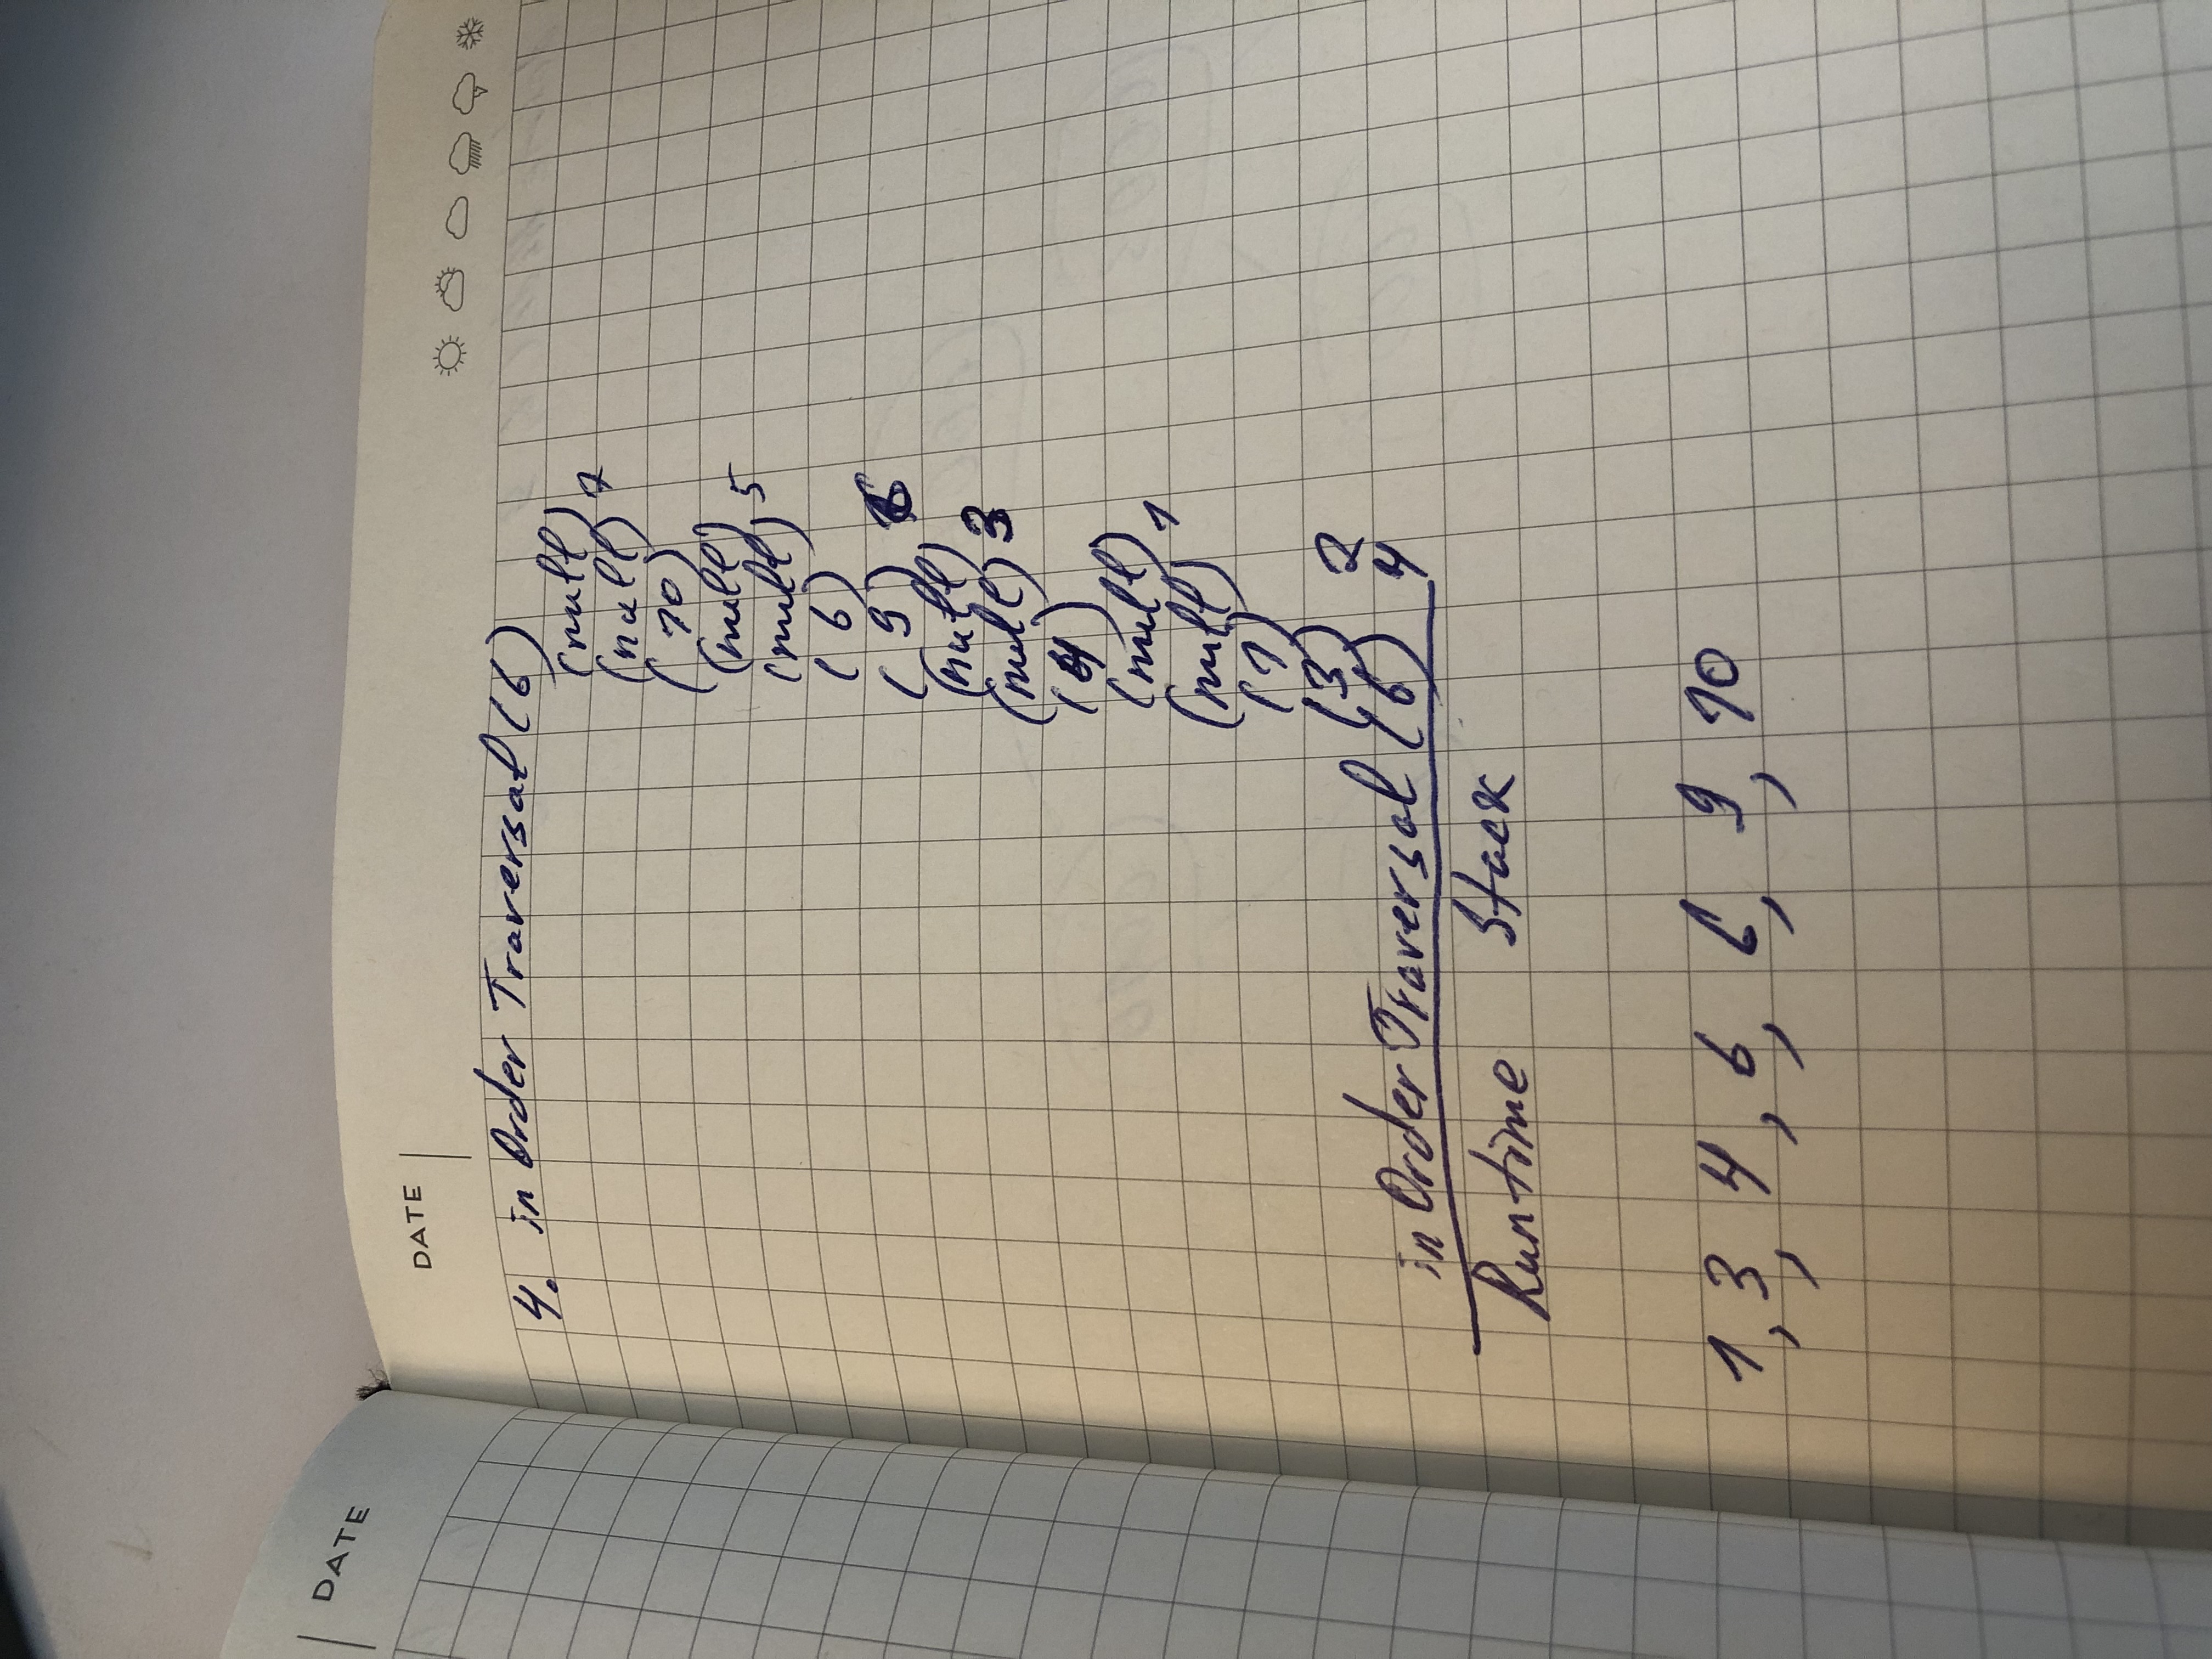 DATE
DATE
4. in Order Traversal (6)
(null)
(null) 7
(10)
(null)
(null) 5
(6)
(9) 6
(null)
(null) 3
(4)
(null)
(null) 1
(1)
(3) 2
in Order Traversal (6) 4
Runtime Stack
1, 3, 4, 6, 6, 9, 10